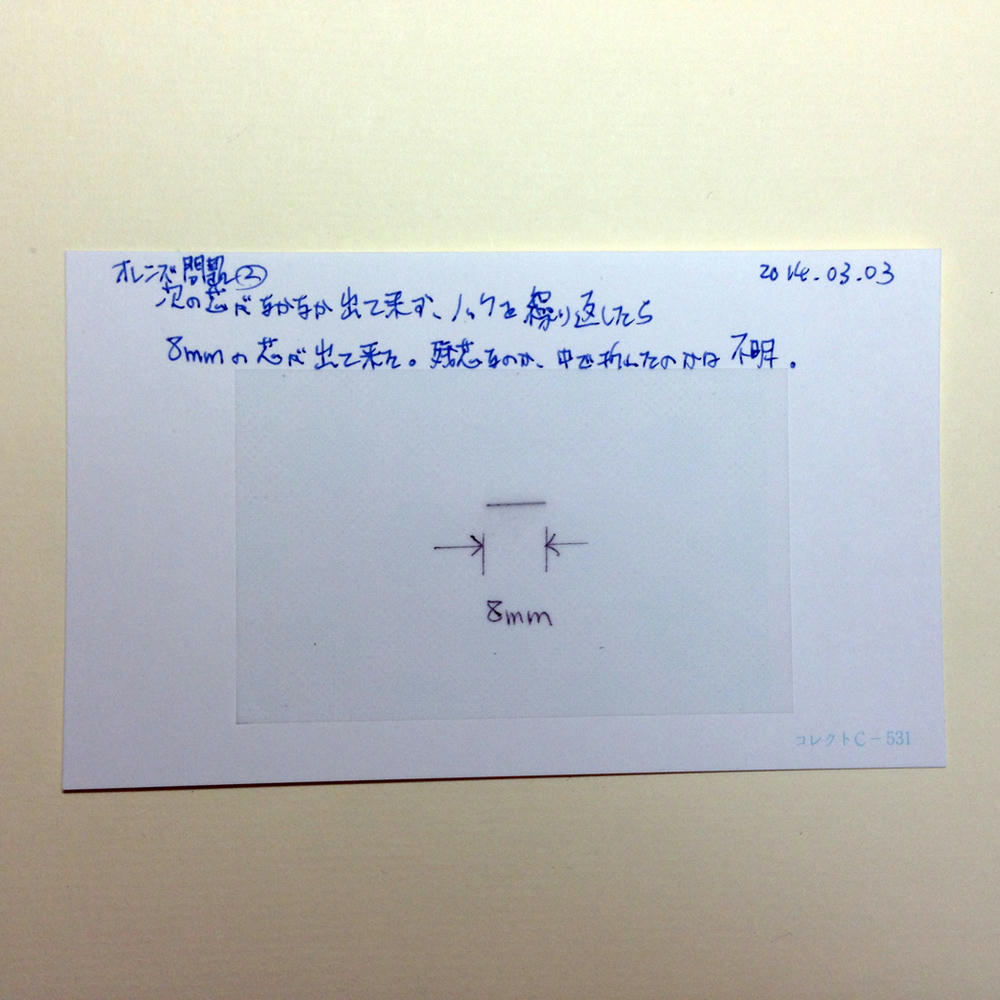 オレンズ問題②
2014.03.03
次の芯がなかなか出て来ず、ノックを繰り返したら
8mmの芯が出て来た。残芯なのか、中で折れたのかは不明。
8mm
コレクトC-531